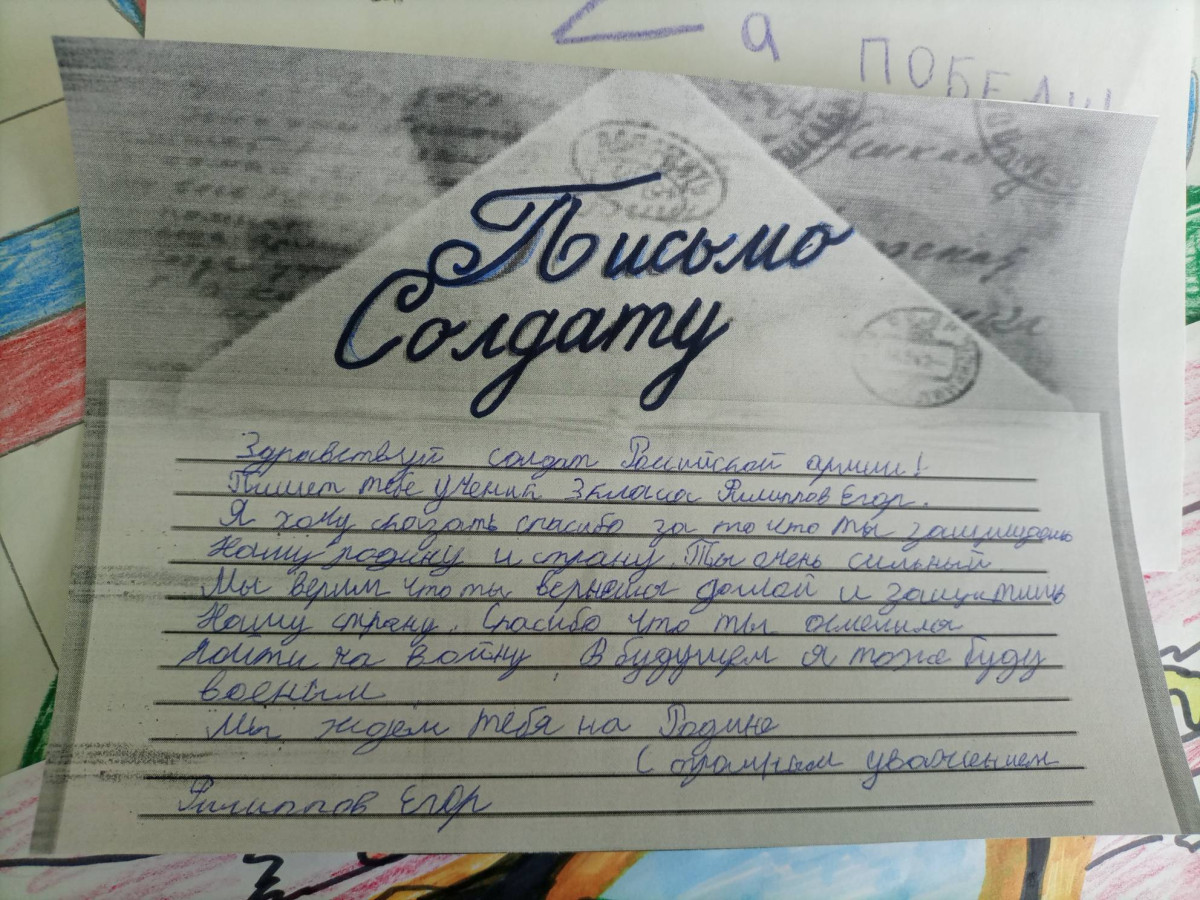 Za ПОБЕДУ
Письмо
Солдату
Здравствуй солдат Российской армии!
Пишет тебе ученик 3 класса Филиппов Егор.
Я хочу сказать спасибо за то что ты защищаешь
Нашу родину и страну. Ты очень сильный.
Мы верим что ты вернёшься домой и защитишь
Нашу страну. Спасибо что ты осмелился
пойти на войну. В будущем я тоже буду
военым
Мы ждем тебя на Родине
С огромным уважением
Филиппов Егор